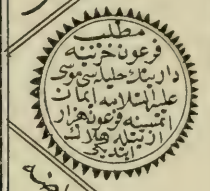 مطلب
فرعون خزينه
دارينك حليله سى موسى
عليه السلامه ايمان
اتمسنه فرعون هزار
ازيتله هلاك